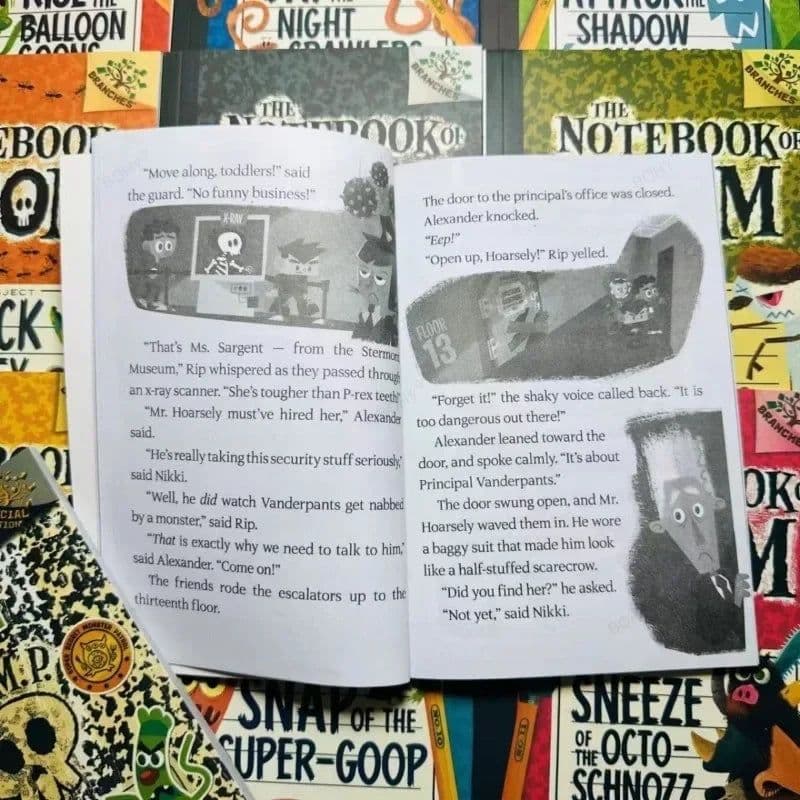 RISE OF THE
BALLOON
GOONS
DAY OF THE
NIGHT
CRAWLERS
ATTACK OF THE
SHADOW
BRANCHES
THE
NOTEBOOK OF
BRANCHES
THE
NOTEBOOK OF
M
"Move along, toddlers!" said
the guard. "No funny business!"
X-RAY
"That's Ms. Sargent — from the Stermont
Museum," Rip whispered as they passed through
an x-ray scanner. "She's tougher than P-rex teeth!"
"Mr. Hoarsely must've hired her," Alexander
said.
"He's really taking this security stuff seriously,"
said Nikki.
"Well, he did watch Vanderpants get nabbed
by a monster," said Rip.
"That is exactly why we need to talk to him,"
said Alexander. "Come on!"
The friends rode the escalators up to the
thirteenth floor.
The door to the principal's office was closed.
Alexander knocked.
"Eep!"
"Open up, Hoarsely!" Rip yelled.
FLOOR
13
"Forget it!" the shaky voice called back. "It is
too dangerous out there!"
Alexander leaned toward the
door, and spoke calmly. "It's about
Principal Vanderpants."
The door swung open, and Mr.
Hoarsely waved them in. He wore
a baggy suit that made him look
like a half-stuffed scarecrow.
"Did you find her?" he asked.
"Not yet," said Nikki.
BRANCHES
M
SUPER SECRET MONSTER PATROL
SNAP OF THE
SUPER-GOOP
SNEEZE
OF THE OCTO-
SCHNOZZ